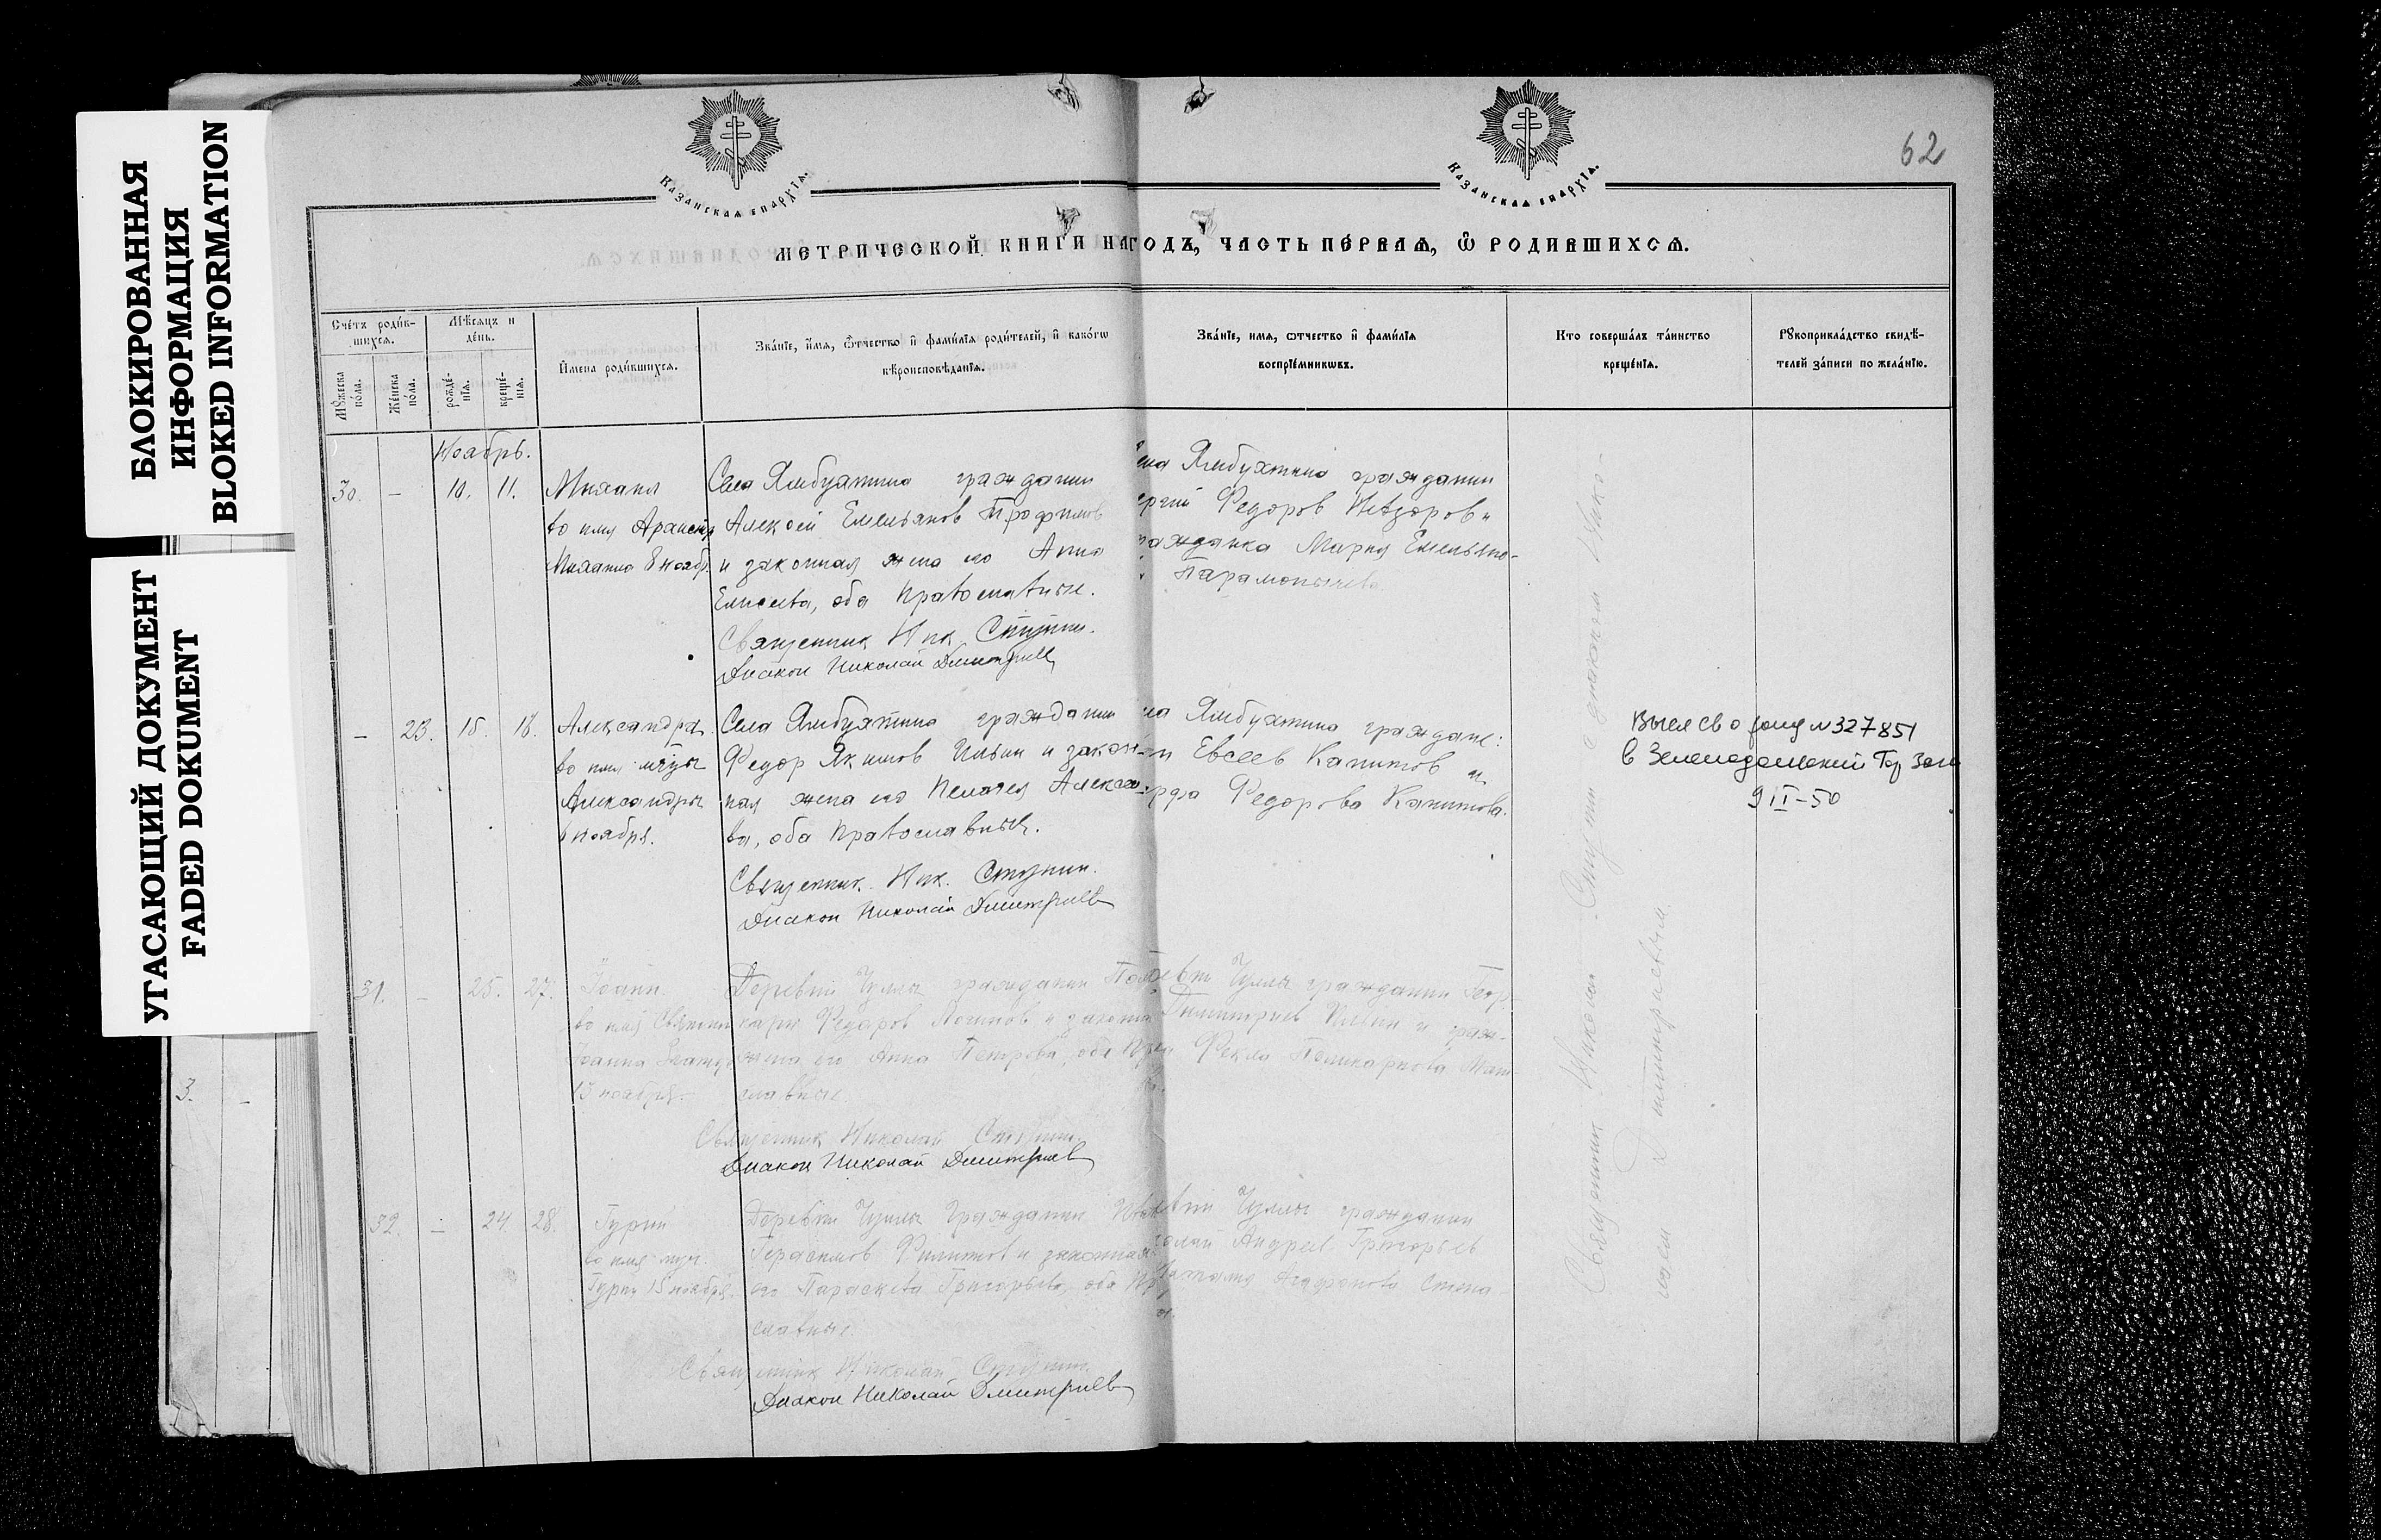 БЛОКИРОВАННАЯ
ИНФОРМАЦИЯ
BLOKED INFORMATION
УГАСАЮЩИЙ ДОКУМЕНТ
FADED DOKUMENT
Казанская епархїѧ.
Казанская епархїѧ.
62
МЕТРИЧЕСКОЙ КНИГИ НА ГОДЪ, ЧАСТЬ ПЕ́РВАѦ, Ѡ҆ РОДИВШИХСѦ.
Сче́тъ роди́в-
шихсѧ.
Мꙋ́жеска
по́ла.
Же́нска
по́ла.
Мѣ́сѧцъ и
де́нь.
рожде́-
нїѧ.
креще́-
нїѧ.
И҆мена роди́вшихсѧ.
Зва́нїе, и҆́мѧ, ѻ҆́тчество и҆ фами́лїѧ роди́телей, и҆ како́гѡ
вѣроисповѣ́данїѧ.
Зва́нїе, имѧ, ѻтчество и҆ фами́лїѧ
воспрїе́мникѡвъ.
Кто соверша́лъ та́инство
креще́нїѧ.
Рꙋкоприкла́дство свидѣ́-
телей за́писи по жела́нїю.
Ноябрь.
30. – 10. 11.
Михаил
во имя Архистр.
Михаила 8 ноябр.
Села Ямбухтина гражданин
Алексей Емельянов Трофимов
и законная жена его Анна
Елисеева, оба православные.
Священник Ник. Ступин.
Диакон Николай Димитриев
села Ямбухтина гражданин
Федоров Невзоров и
гражданка Мария Емельяно-
– 23. 15. 18.
Александра
во имя мчцы
Александры
6 ноября.
Села Ямбухтина гражданин
Федор Якимов Ильин и закон-
ная жена его Пелагея Алексее-
ва, оба православные.
Священник Ник. Ступин.
Диакон Николай Димитриев
Ямбухтина граждане:
Евсеев Капитов и
Федорова Капитова.
в Зеленодольский Гор Загс
9 II-50
31. – 25. 27.
Иоанн
во имя Святит.
Иоанна
13 ноября.
Деревни Чуллы гражданин Поли-
карп Федоров Логинов и законная
жена его Анна Петрова, оба пра-
славные.
Священник Николай Ступин.
Диакон Николай Димитриев
Чуллы гражданин Геор-
Димитриев Ильин и граж-
Фекла Поликарпова
32. – 24 28.
Гурий
во имя муч.
Гурия 15 ноября.
Деревни Чуллы Гражданин
Герасимов Филипов и законная
его Параскева Григорьева, оба пр
славные.
Священник Николай Ступин.
Диакон Николай Димитриев
Чуллы гражданин
Андреев Григорьев
Агафонова
Священник Николай Ступин с диаконом Нико-
лаем Димитриевым.
3. –